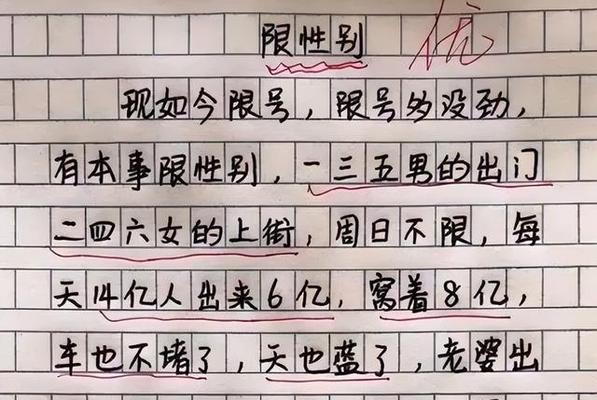 限性别
优
现如今限号，限号多没劲，
有本事限性别，一三五男的出门
二四六女的上街，周日不限，每
天14亿人出来6亿，窝着8亿，
车也不堵了，天也蓝了，老婆出